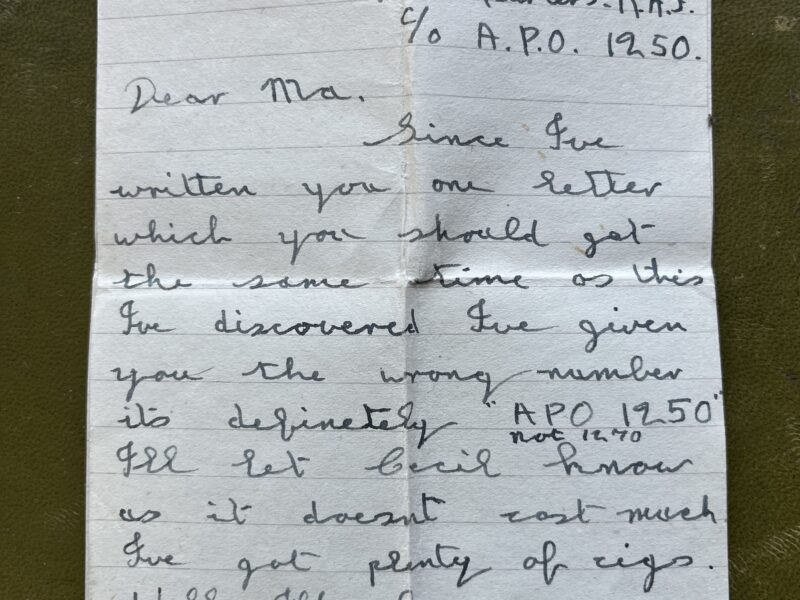 c/o A.P.O. 1250.
Dear Ma.
Since I've
written you one letter
which you should get
the same time as this
I've discovered I've given
you the wrong number
its definetely "APO 1250"
not 1270
I'll let Cecil know
as it doesnt cost much
I've got plenty of cigs.